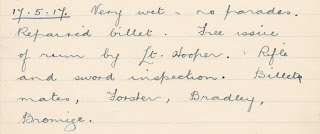 17.5.17. Very wet - no parades.
Repaired billet. Free issue
of rum by Lt. Hooper. Rifle
and sword inspection. Billet
mates, Forster, Bradley,
Bromige.